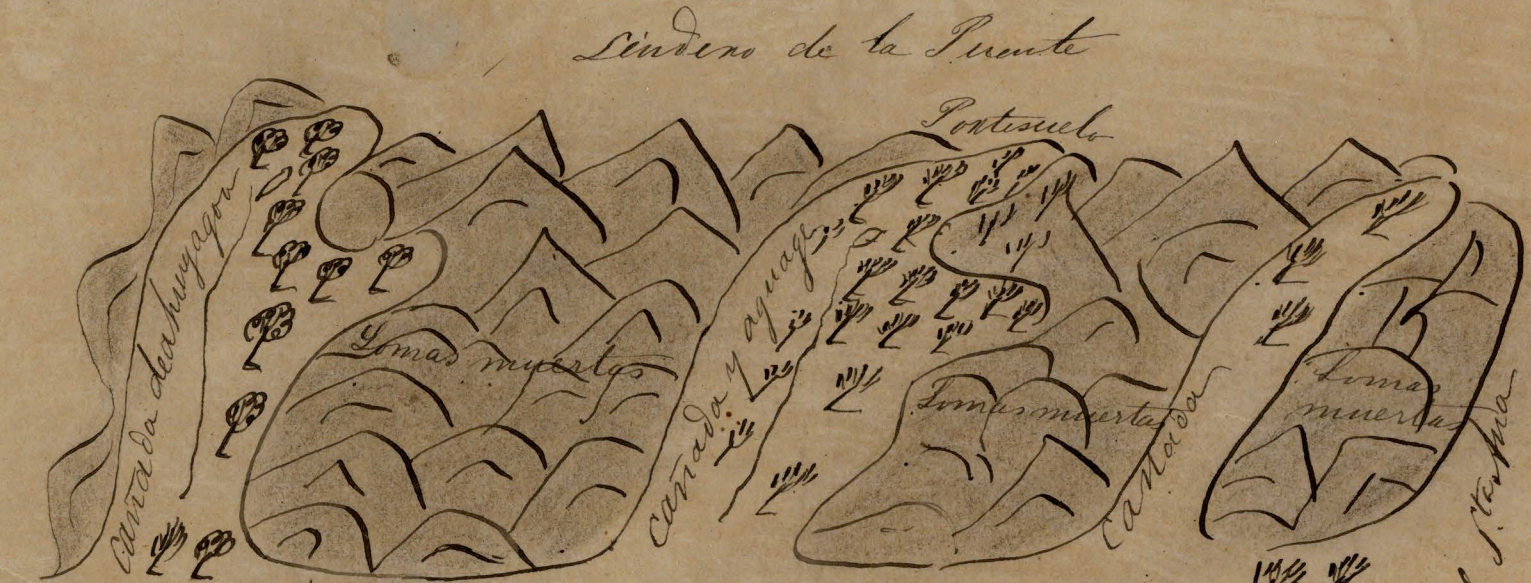 Lindero de la Puente
Portesuelo
cañada de ahuyagoa
Lomas muertas
cañada y aguage
Lomas muertas
cañada
Lomas
muertas
Sta Ana